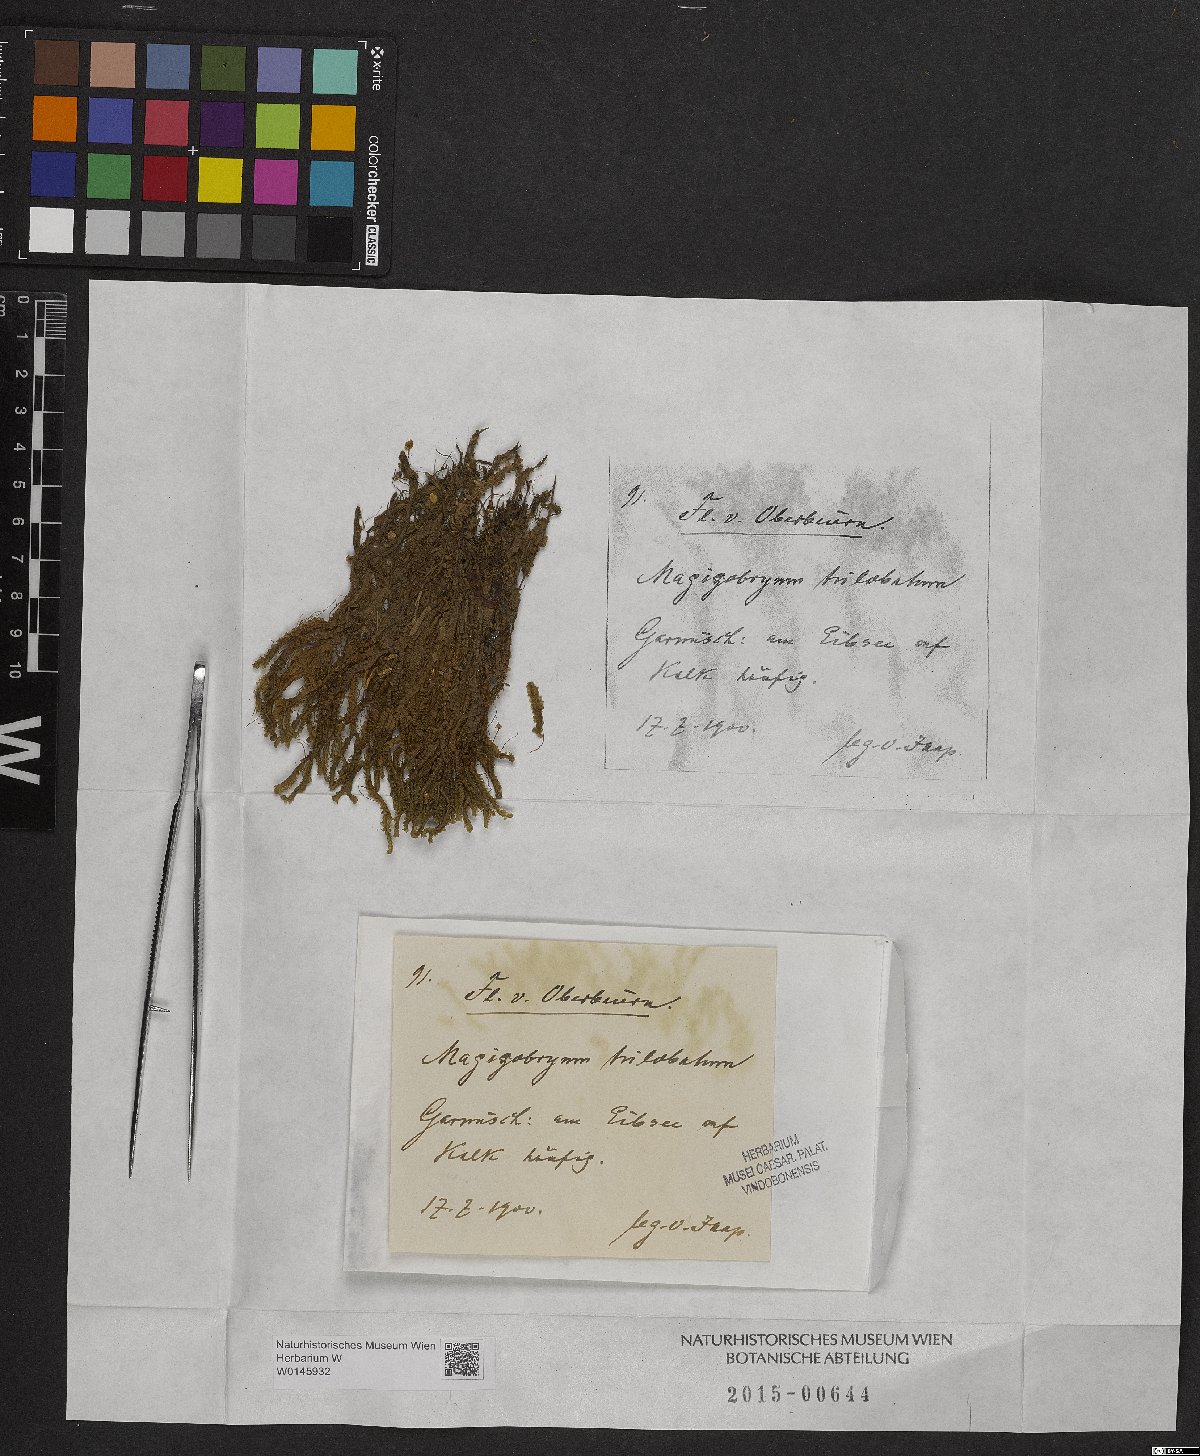 x-rite
colorchecker
CLASSIC
cm
0
1
2
3
4
5
6
7
8
9
10
W
91.
Fl. v. Oberbeuern.
Magigobryum trilobatum
Garmisch: am Eibsee auf
Kalk häufig.
17.7.1900.
leg. O. Jaap.
91.
Fl. v. Oberbeuern.
Magigobryum trilobatum
Garmisch: am Eibsee auf
Kalk häufig.
17.7.1900.
leg. O. Jaap.
HERBARIUM
MUSEI CAESAR. PALAT.
VINDOBONENSIS
Naturhistorisches Museum Wien
Herbarium W
W0145932
NATURHISTORISCHES MUSEUM WIEN
BOTANISCHE ABTEILUNG
2015-00644
BY-SA